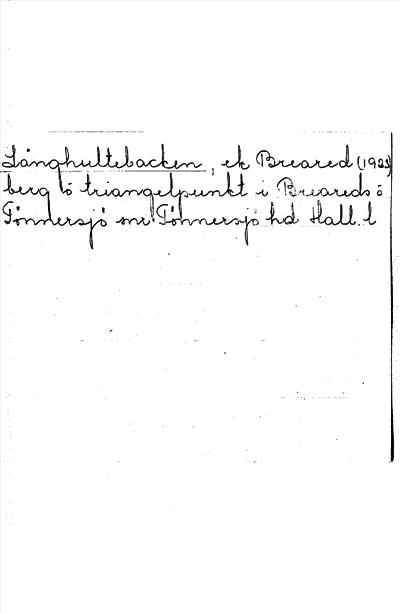 Långhultebacken, ek Breared (1925)
berg o triangelpunkt i Breareds o
Tönnersjö snr Tönnersjö hd Hall. l